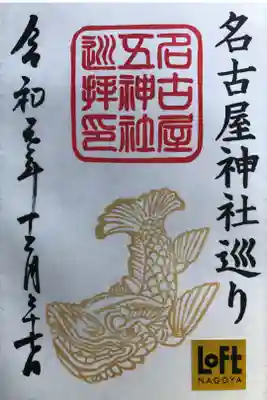 名古屋神社巡り
名古屋
五神社
巡拝印
令和元年十二月
LoFt
NAGOYA